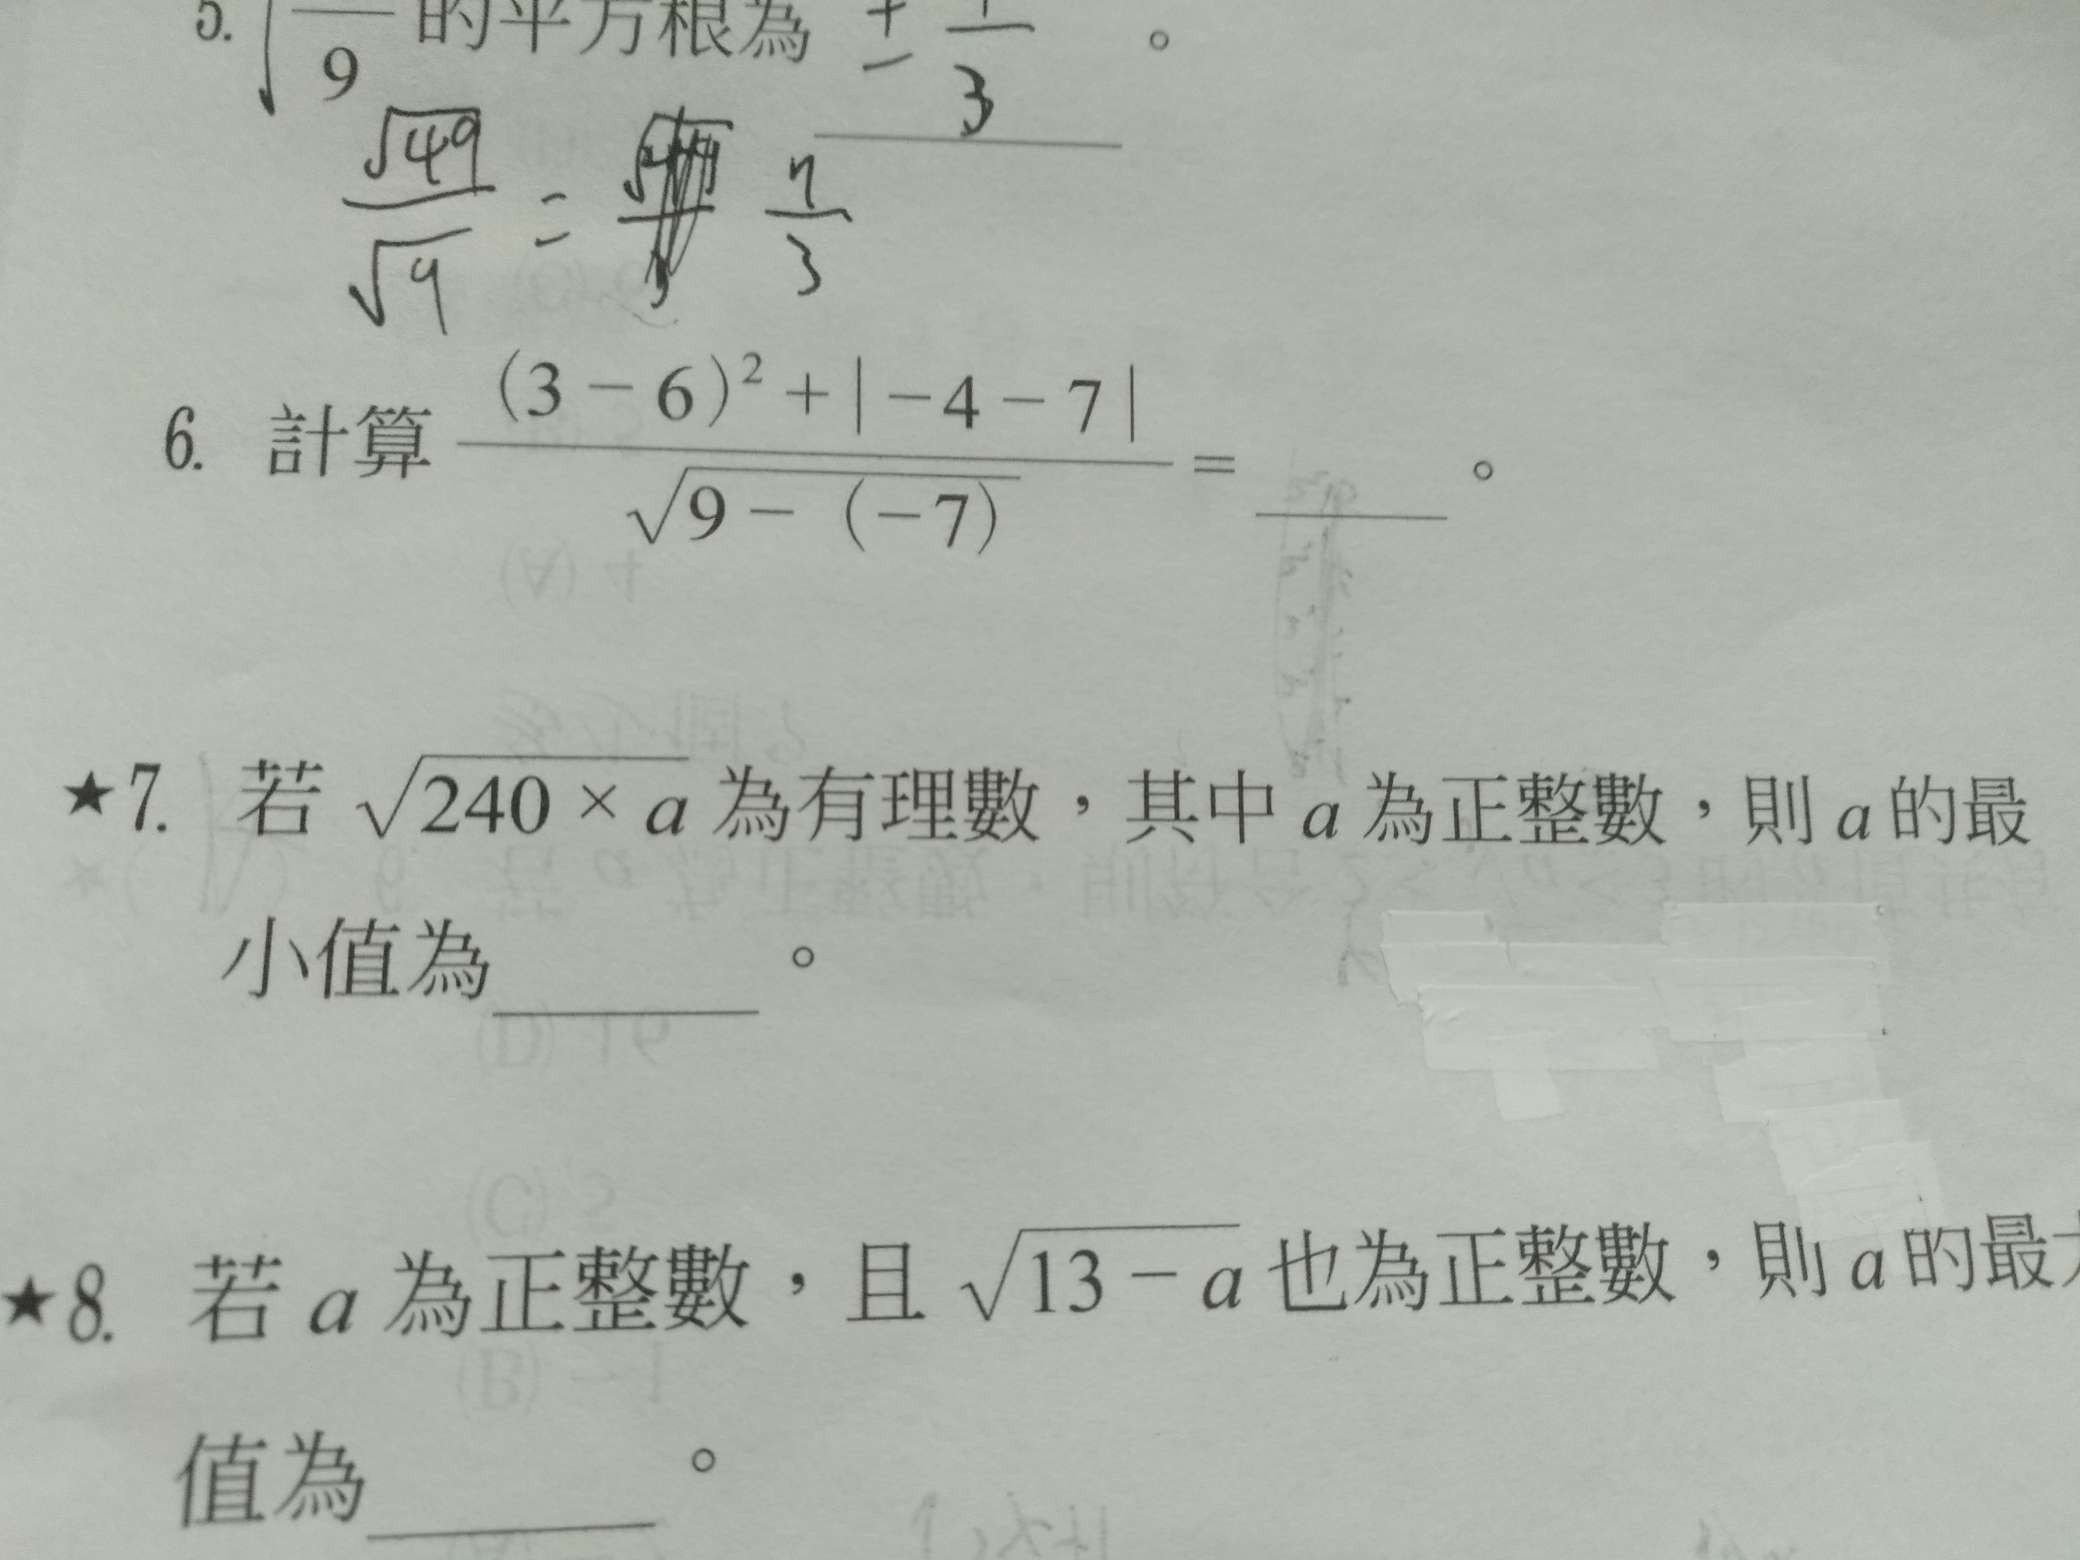 5. √ 9 的平方根為 ± 3 。
√49 / √9 = 7 / 3
6. 計算 (3－6)²＋|－4－7| / √9－(－7) = ＿＿＿。
★7. 若 √240 × a 為有理數，其中 a 為正整數，則 a 的最
小值為＿＿＿。
★8. 若 a 為正整數，且 √13－a 也為正整數，則 a 的最
值為＿＿＿。